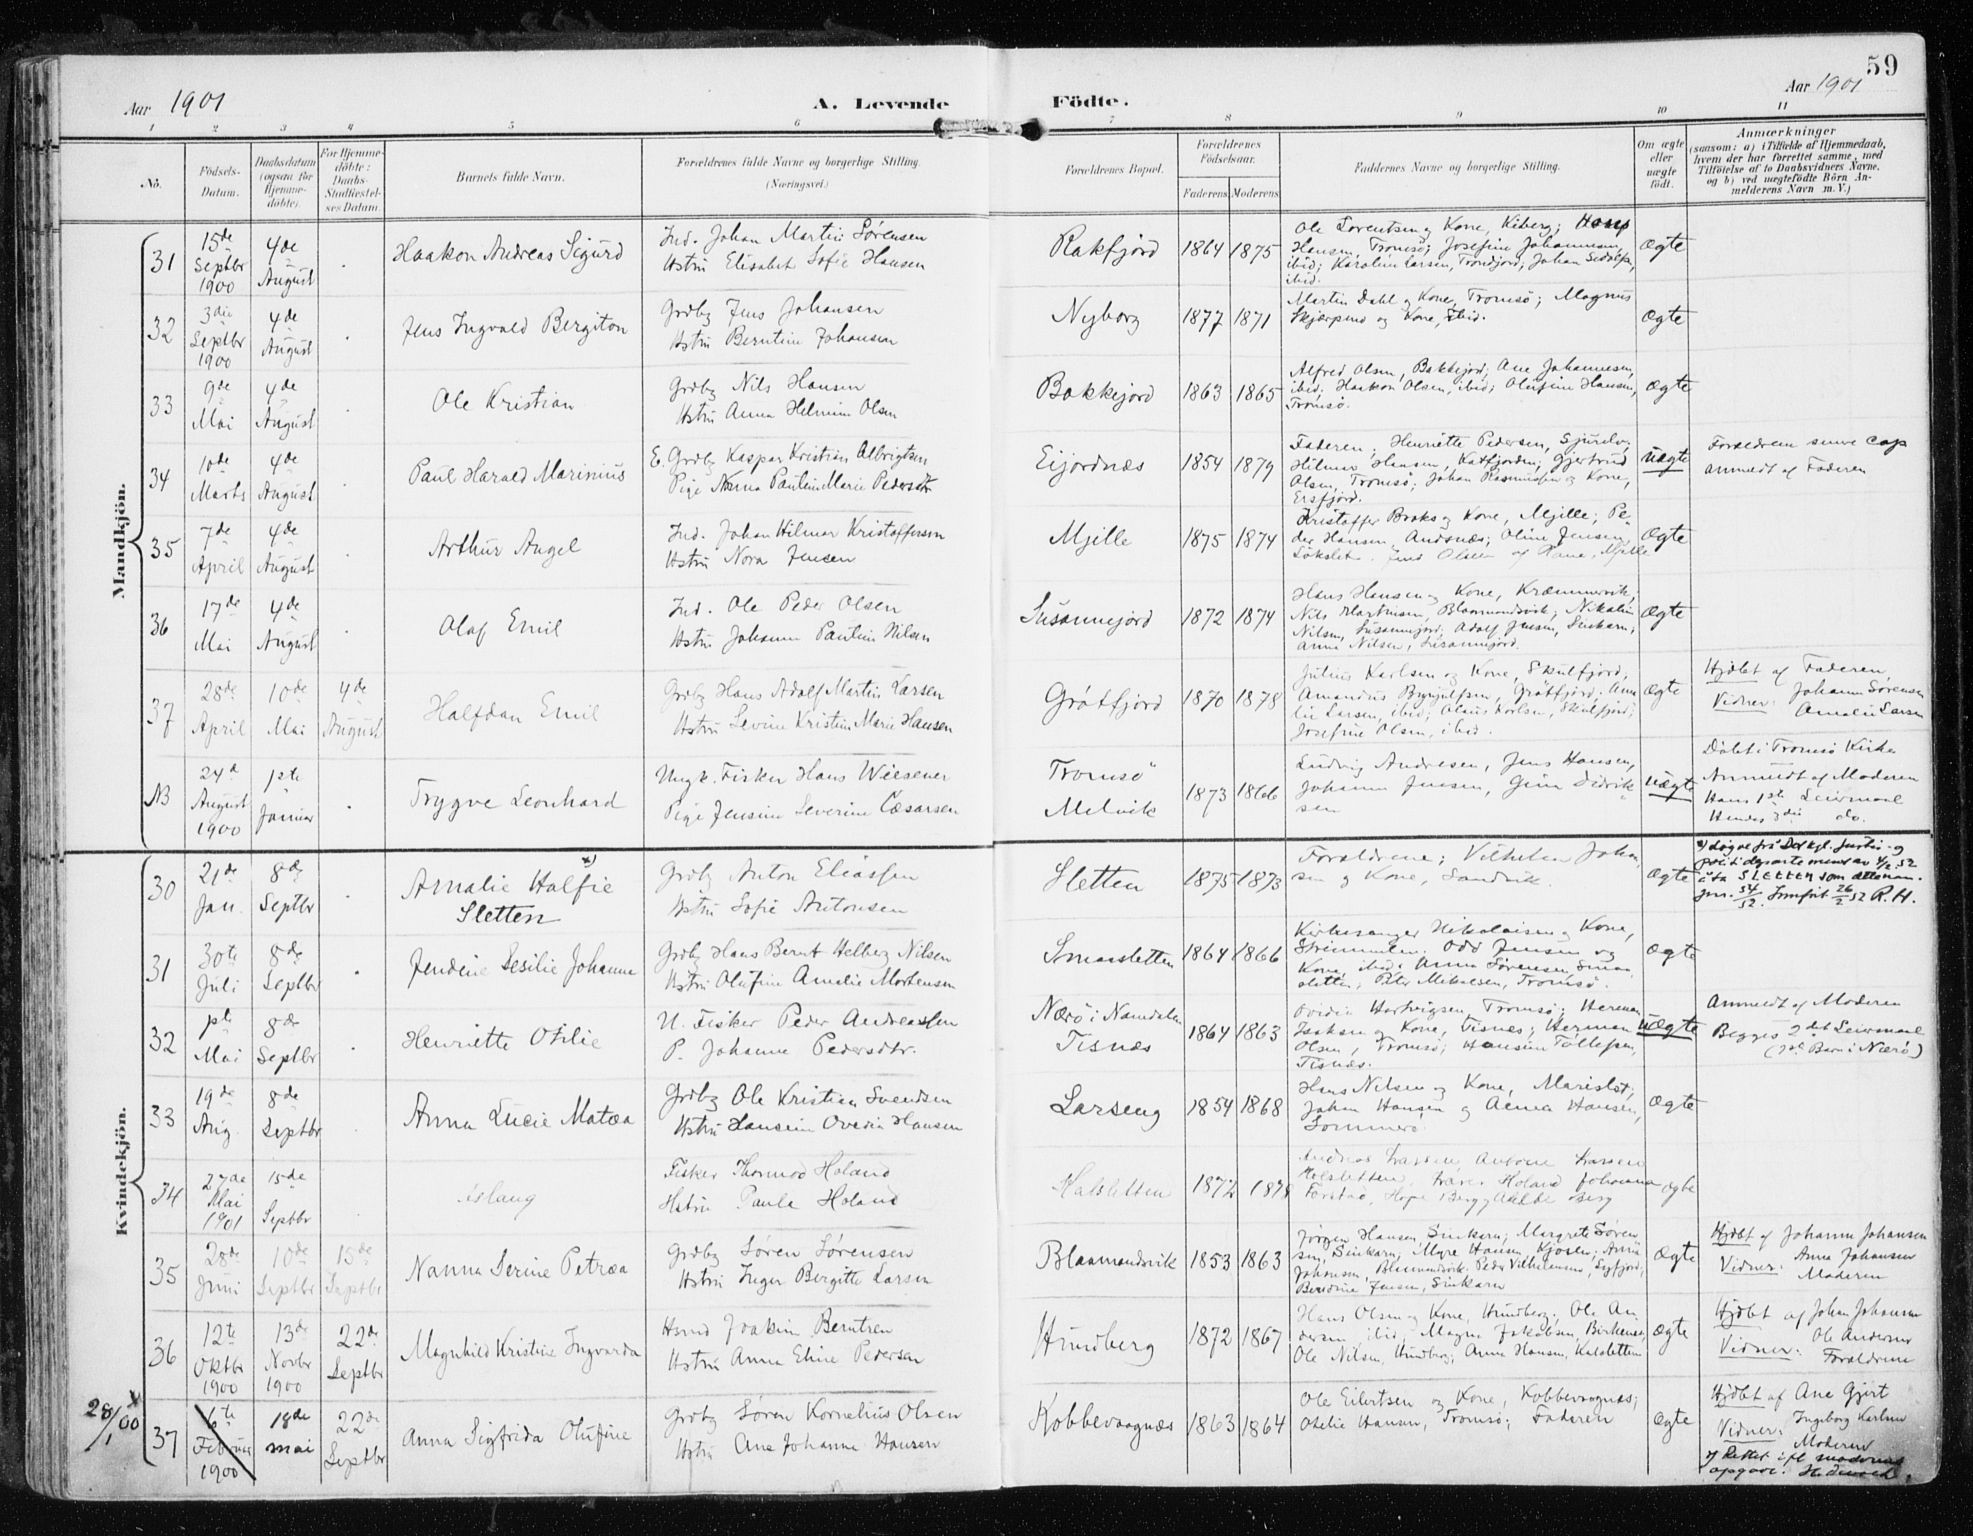 59
Aar 1901
A. Levende Födte.
Aar 1901
1 2 3 4 5 6 7 8 9 10 11
No.
Födsels-Datum.
Daabsdatum (ogsaa for Hjemmedöbte).
For Hjemmedöbte: Daabs-Stadfæstelses Datum.
Barnets fulde Navn.
Forældrenes fulde Navne og borgerlige Stilling. (Næringsvei.)
Forældrenes Bopæl.
Forældrenes Födselsaar.
Faderens Moderens
Faddernes Navne og borgerlige Stilling.
Om ægte eller uægte födt.
Anmærkninger
(saasom: a) i Tilfælde af Hjemmedaab, hvem der har forrettet samme, med Tilföielse af to Daabsvidners Navne, og b) ved uægtefödte Börn Anmelderens Navn m. V.)
Mandkjön.
31 15de Septbr 1900 4de August Haakon Andreas Sigurd
Ind. Johan Martin Sørensen
Hstru Elisabet Sofie Hansen
Rakfjord 1864 1875
Ole Lorentsen og Kone, Kiberg; Hans
Hansen, Tromsö; Josefine Johannesen,
ibid; Karoline Larsen, Tromsö; Johan
ibid.
Ægte
32 3die Septbr 1900 4de August Jens Ingvald Bergiton
Grdbg Jens Johansen
Hstru Berntine Johansen
Nyborg 1877 1871
Martin Dahl og Kone, Tromsö; Magnus
og Kone, ibid.
Ægte
33 9de Mai 4de August Ole Kristian
Grdbg Nils Hansen
Hstru Anna Helmine Olsen
Bakkejord 1863 1865
Alfred Olsen, Bakkejord; Ane Johannesen,
ibid; Haakon Olsen, ibid; Olufine Hansen,
Tromsö.
Ægte
34 10de Marts 4de August Paul Harald Marinius
E. Grdbg Kaspar Kristian Albrigtsen
Pige Anna Pauline Marie Pedersdtr
Eijordnæs 1854 1879
Faderen; Henriette Pedersen,
Hilmar Hansen, Katfjorden; Gjertrud
Olsen, Tromsö; Johan Rasmussen og Kone,
Ersfjord.
Uægte
Forældrene
anmeldt af Faderen
35 7de April 4de August Arthur Angel
Ind. Johan Hilmar Kristoffersen
Hstru Nora Jensen
Mjelle 1875 1874
Kristoffer Braks og Kone, Mjelle; Pe-
der Hansen, Andsnæs; Oline Jensen
Olsen og Kone, Mjelle
Ægte
36 17de Mai 4de August Olaf Emil
Ind. Ole Peder Olsen
Hstru Johanne Pauline Nilsen
Susannejord 1872 1874
Hans Hansen og Kone, Kræmmervik;
Nils Martinsen, Blaamandsvik; Nikoline
Nilsen, Susannejord; Adolf Jensen, Sinkarn;
Anna Nilsen, Susannejord.
Ægte
37 28de April 10de Mai 4de August Halfdan Emil
Grdbg Hans Adolf Martin Larsen
Hstru Sevine Kristine Marie Hansen
Grøtfjord 1870 1878
Julius Karlsen og Kone, Skulfjord;
Amandus Brynjulfsen, Grøtfjord; Ama-
lie Larsen, ibid; Olaus Karlsen, Skulfjord;
Josefine Olsen, ibid.
Ægte
Hjdbt af Faderen
Vidner: Johanne Sørensen
Amalie Larsen
NB 24de August 1900 1ste Januar Trygve Leonhard
Ungk. Fisker Hans Wiesener
Pige Jensine Severine Cæsarsen
Tromsö
Melvik 1873 1866
Ludvig Andresen, Jens Hansen,
Johanne Jensen, Gina Didrik-
sen
Uægte
Döbt i Tromsö Kirke
Anmeldt af Moderen
Hans 1ste Leiermaal
Hendes 3die do.
Kvindekjön.
30 21de Jan. 8de Septbr Amalie Halfie x)
Sletten
Grdbg Anton Eliassen
Hstru Sofie Antonsen
Sletten 1875 1873
Forældrene; Vilhelm Johan-
sen og Kone, Sandvik.
Ægte
SLETTEN som etternavn.
R. H.
31 30te Juli 8de Septbr Jendine Sesilie Johanne
Grdbg Hans Bernt Helberg Nilsen
Hstru Olufine Amalie Mortensen
Smaasletten 1864 1866
Kirkesanger Nikolaisen og Kone,
Strimmelen; Odd Jensen og
Kone, ibid; Anna Sørensen, Smaa-
sletten; Peter Mikalsen, Tromsö.
Ægte
32 1ste Mai 8de Septbr Henriette Otilie
U. Fisker Peder Andreassen
P. Johanne Pedersdtr.
Nærö i Namdalen
Tisnæs 1864 1863
Ovidia Hartvigsen, Tromsö; Herman
Isaksen og Kone, Tisnes; Herman
Olsen, Tromsö; Hansine Tollefsen,
Tisnæs.
Uægte
Anmeldt af Moderen
Begges 2det Leiermaal
(1ste Barn i Nærö)
33 19de Aug. 8de Septbr Anna Lucie Matæa
Grdbg Ole Kristian Svendsen
Hstru Hansine Ovedia Hansen
Larseng 1854 1868
Hans Nilsen og Kone,
Johan Hansen og Anna Hansen,
Sommerö
Ægte
34 27de Mai 1901 15de Septbr Aslaug
Fisker Thormod Holand
Hstru Paula Holand
Kalsletten 1872 1878
Andreas Larsen, Antone Larsen
Kalsletten, Holand, Johanna
Berg
Ægte
35 28de Juni 10de Septbr 15de Septbr Nanna Serine Petræa
Grdbg Søren Sørensen
Hstru Inger Bergitte Larsen
Blaamandsvik 1853 1863
Jørgen Hansen, Sinkarn; Margrete Søren-
sen, Sinkarn; Myre Hansen, Kjosen; Anna
Johansen, Blaamandsvik; Peder Vilhelmsen,
Beredine Jensen, Sinkarn
Ægte
Hjdbt af Johanne Johansen
Vidner: Anna Johansen
Moderen
36 12te Oktbr 1900 13de Novbr 1900 22de Septbr Magnhild Kristine Ingvarda
Hsmd Joakim Berntsen
Hstru Anna Eline Pedersen
Hundberg 1872 1867
Hans Olsen og Kone, Hundberg; Ole An-
dersen, ibid; Magna Jakobsen,
Ole Nilsen, Hundberg; Anna Hansen, Kalsletten
Ægte
Hjdbt af Johan Johansen
Vidner: Ole Andersen
Forældrene
28/1 00 x
37 6te Februar 1900 18de mai 22de Septbr Anna Sigfrida Olufine
Grdbg Søren Kornelius Olsen
Hstru Ane Johanna Hansen
Kobbevaagnæs 1863 1864
Ole Eilertsen og Kone, Kobbevaagnæs;
Otelie Hansen, Tromsö; Faderen
Ægte
Hjdbt af Ane Gjert
Vidner: Ingeborg Karlsen
Moderen
x) Rettet ifl moderens
opgave.